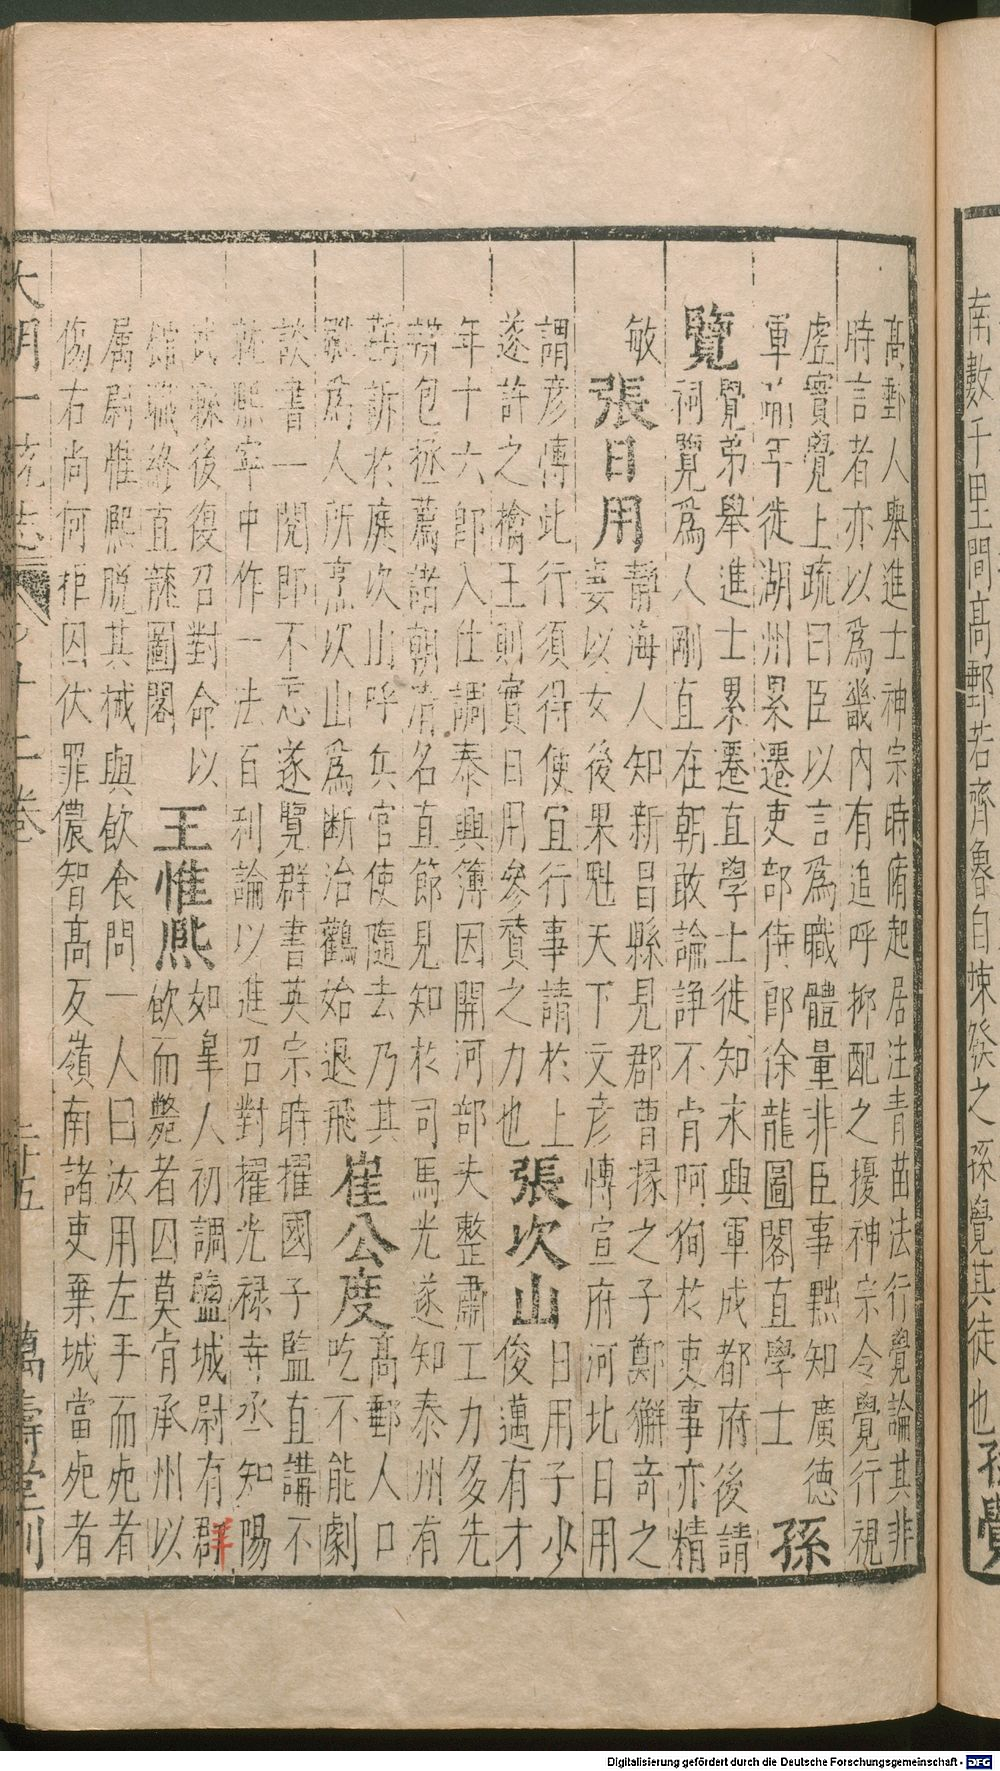 南數千里間高郵若齊魯自悚發之孫覺其徒也孫覺
高郵人舉進士神宗時脩起居注青苗法行覺論其非
時言者亦以爲畿内有追呼抑配之擾神宗令覺行視
虛實覺上疏曰臣以言爲職體量非臣事黜知廣德
軍踰年徙湖州累遷吏部侍郎徐龍圖閣直學士
孫
覽
覺弟舉進士累遷直學士徙知永興軍成都府後請
祠覽爲人剛直在朝敢論諍不肯阿狥於吏事亦精
敏
張日用
靜海人知新昌縣見郡曹掾之子鄭獬奇之
妾以女後果魁天下文彦愽宣府河北日用
謂彦愽此行須得使宜行事請於上
遂許之擒王則實日用參賛之力也
張次山
日用子少
俊邁有才
年十六郎入仕調泰興簿因開河部夫整肅工力多先
辦包拯薦諸朝清名直節見知於司馬光遂知泰州有
鸛訴於庭次山呼兵官使隨去乃其
巢爲人所焄次山爲斷治鸛始退飛
崔公度
高郵人口
吃不能劇
談書一閱即不忘遂覽群書英宗時擢國子監直講不
就熙寧中作一法百利論以進召對擢光禄寺丞知陽
武縣後復召對命以
館職終直龍圖閣
王惟熙
如皐人初調鹽城尉有群
羊
飲而斃者囚莫肯承州以
属尉惟熙脱其械與飲食問一人曰汝用左手而死者
傷右尚何拒囚伏罪儂智高反嶺南諸吏棄城當死者
大明一統志 之十二卷 二十五 萬壽堂刊
Digitalisierung gefördert durch die Deutsche Forschungsgemeinschaft - DFG